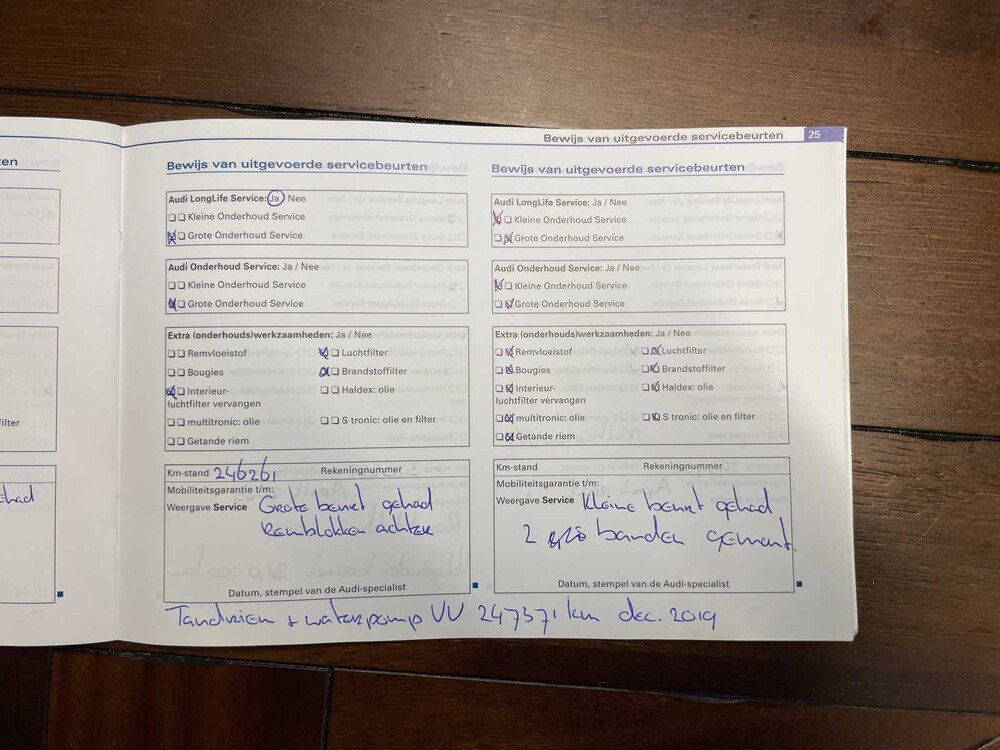 ten
Bewijs van uitgevoerde servicebeurten 25
Bewijs van uitgevoerde servicebeurten
Audi LongLife Service: Ja / Nee
Kleine Onderhoud Service
Grote Onderhoud Service
Audi Onderhoud Service: Ja / Nee
Kleine Onderhoud Service
Grote Onderhoud Service
Extra (onderhouds)werkzaamheden: Ja / Nee
Remvloeistof Luchtfilter
Bougies Brandstoffilter
Interieur- Haldex: olie
luchtfilter vervangen
multitronic: olie S tronic: olie en filter
Getande riem
Km-stand 246261 Rekeningnummer
Mobiliteitsgarantie t/m:
Weergave Service Grote beurt gehad
Remblokken achter
Datum, stempel van de Audi-specialist
Tandriem + waterpomp VV 247371 km dec. 2019
Bewijs van uitgevoerde servicebeurten
Audi LongLife Service: Ja / Nee
Kleine Onderhoud Service
Grote Onderhoud Service
Audi Onderhoud Service: Ja / Nee
Kleine Onderhoud Service
Grote Onderhoud Service
Extra (onderhouds)werkzaamheden: Ja / Nee
Remvloeistof Luchtfilter
Bougies Brandstoffilter
Interieur- Haldex: olie
luchtfilter vervangen
multitronic: olie S tronic: olie en filter
Getande riem
Km-stand Rekeningnummer
Mobiliteitsgarantie t/m:
Weergave Service Kleine beurt gehad
2 banden gemont.
Datum, stempel van de Audi-specialist